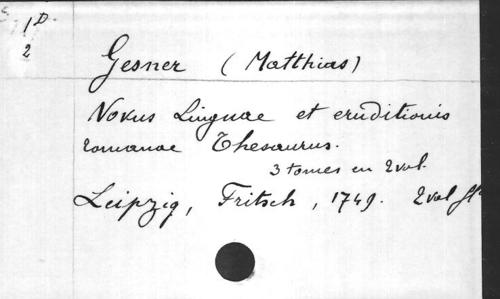 1D.
2
Gesner (Matthias)
Novus Linguae et eruditionis
romanae Thesaurus.
3 tomes en 2 vol.
Leipzig, Fritsch, 1749. 2 vol